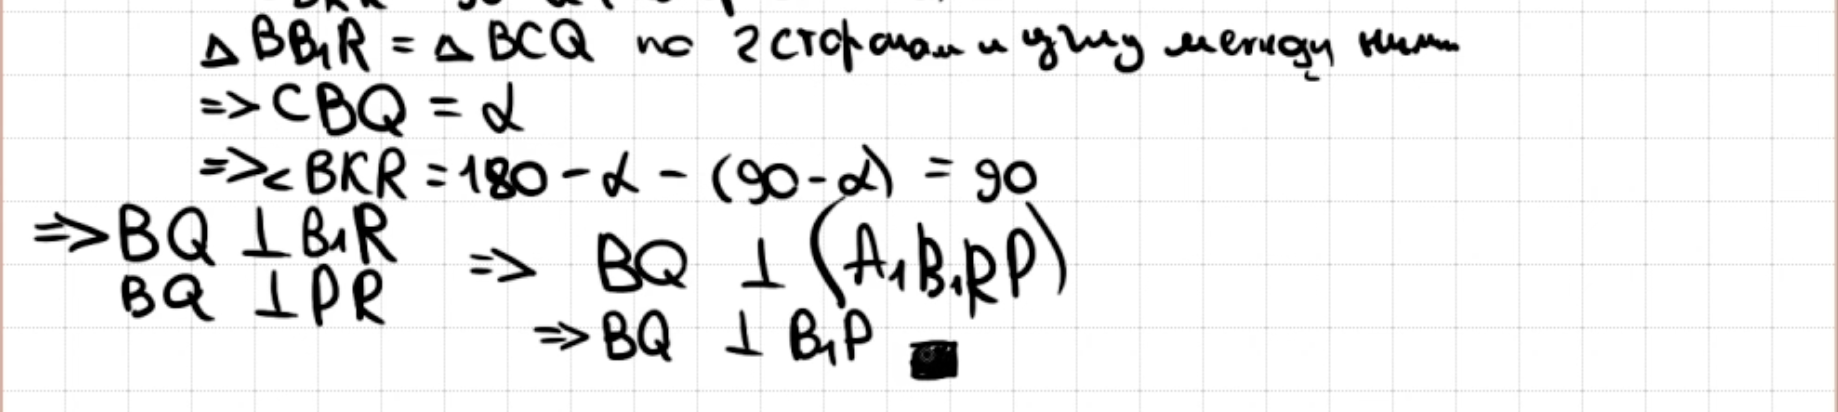 Δ BB₁R = Δ BCQ по 2 сторонам и углу между ними
=> CBQ = α
=> < BKR = 180 - α - (90 - α) = 90
=> BQ ⊥ B₁R => BQ ⊥ (A₁B₁RP)
BQ ⊥ PR => BQ ⊥ B₁P